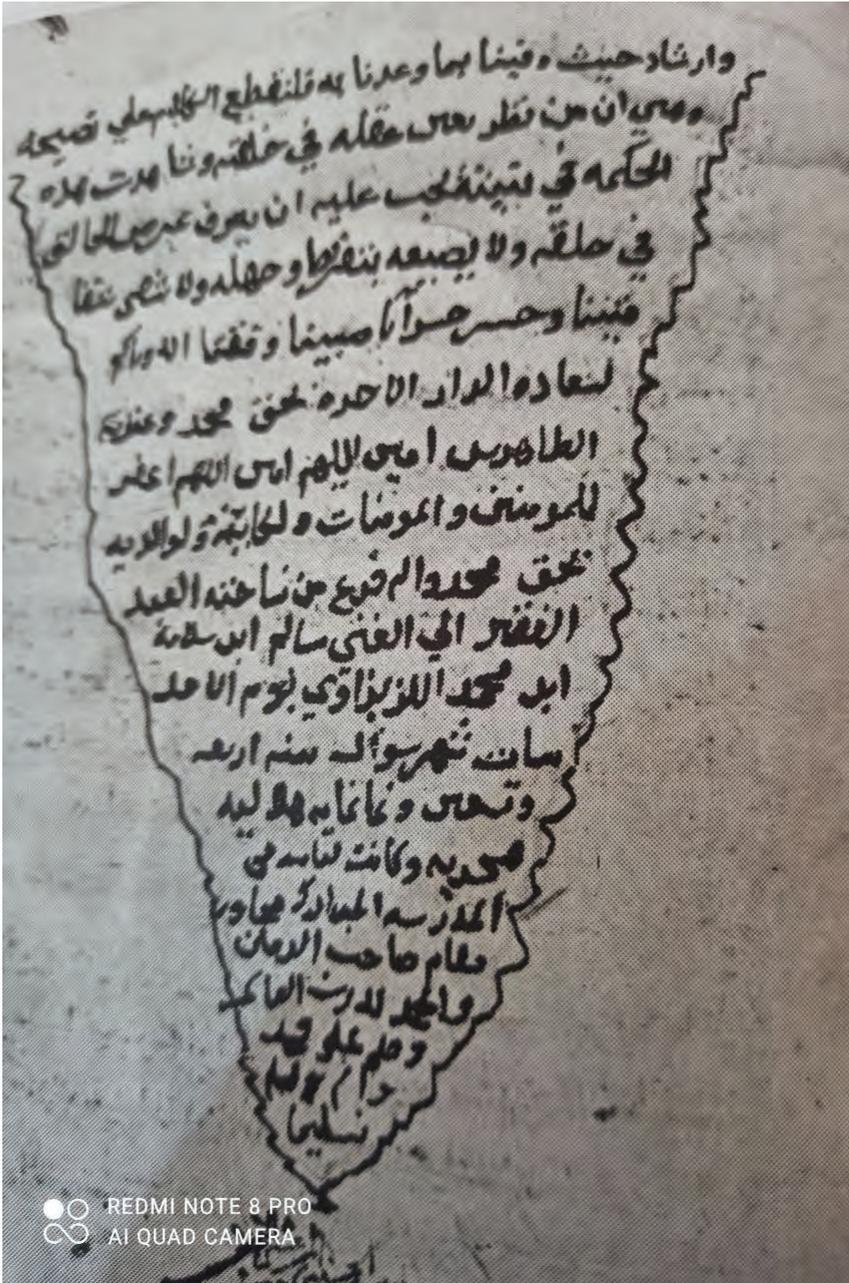 وارشاد حيث وفينا بما وعدنا به فلنقطع الكلام علي نصيحه
وهي ان من نظر بعين عقله في خلقته وتناهدت هذه
الحكمه في بنيته فيجب عليه ان يعرف غرض الخالق
في خلقه ولا يضيعه بتفريط وجهله ولا
وخسر خسرانا مبينا وفقنا الله واياكم
لسعاده الدار الاخره بحق محمد وعترته
الطاهرين امين اللهم امين اللهم اغفر
للمومنين والمومنات ولكاتبه ولوالديه
بحق محمد واله فرغ من نساخته العبد
الفقير الي الغني سالم ابن سلامة
ابن محمد يوم الاحد
سادس شهر شوال سنه اربعه
وتسعين وثمانمايه هلاليه
هجريه وكانت كتابته في
المدرسه المباركه مجاور
مقام صاحب الزمان
والحمد لله رب العالمين
وصلى على محمد
واله
تسليما
REDMI NOTE 8 PRO
AI QUAD CAMERA